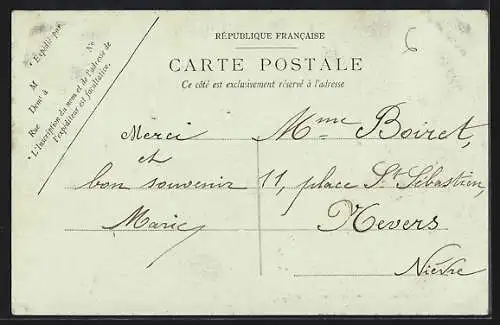 RÉPUBLIQUE FRANÇAISE
CARTE POSTALE
Ce côté est exclusivement réservé à l'adresse
6
* Expédié par
M
N°
Demt à
Rue
* L'Inscription du nom et de l'adresse de
l'expéditeur est facultative.
Merci
et
bon souvenir
Marie
Mme Boiret,
11, place St Sébastien,
Nevers
Nièvre